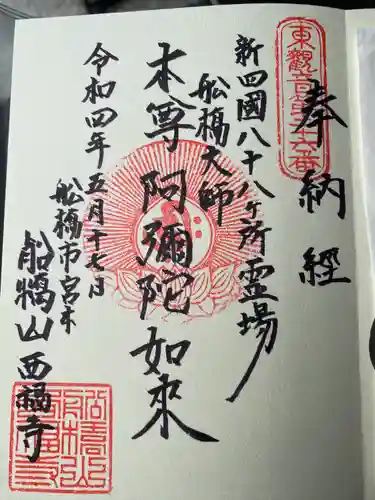 奉納経
東觀音第二十六番
新四國八十八ヶ所霊場
船橋大師
本尊阿彌陀如來
令和四年五月十七日
船橋市宮本
船橋山西福寺